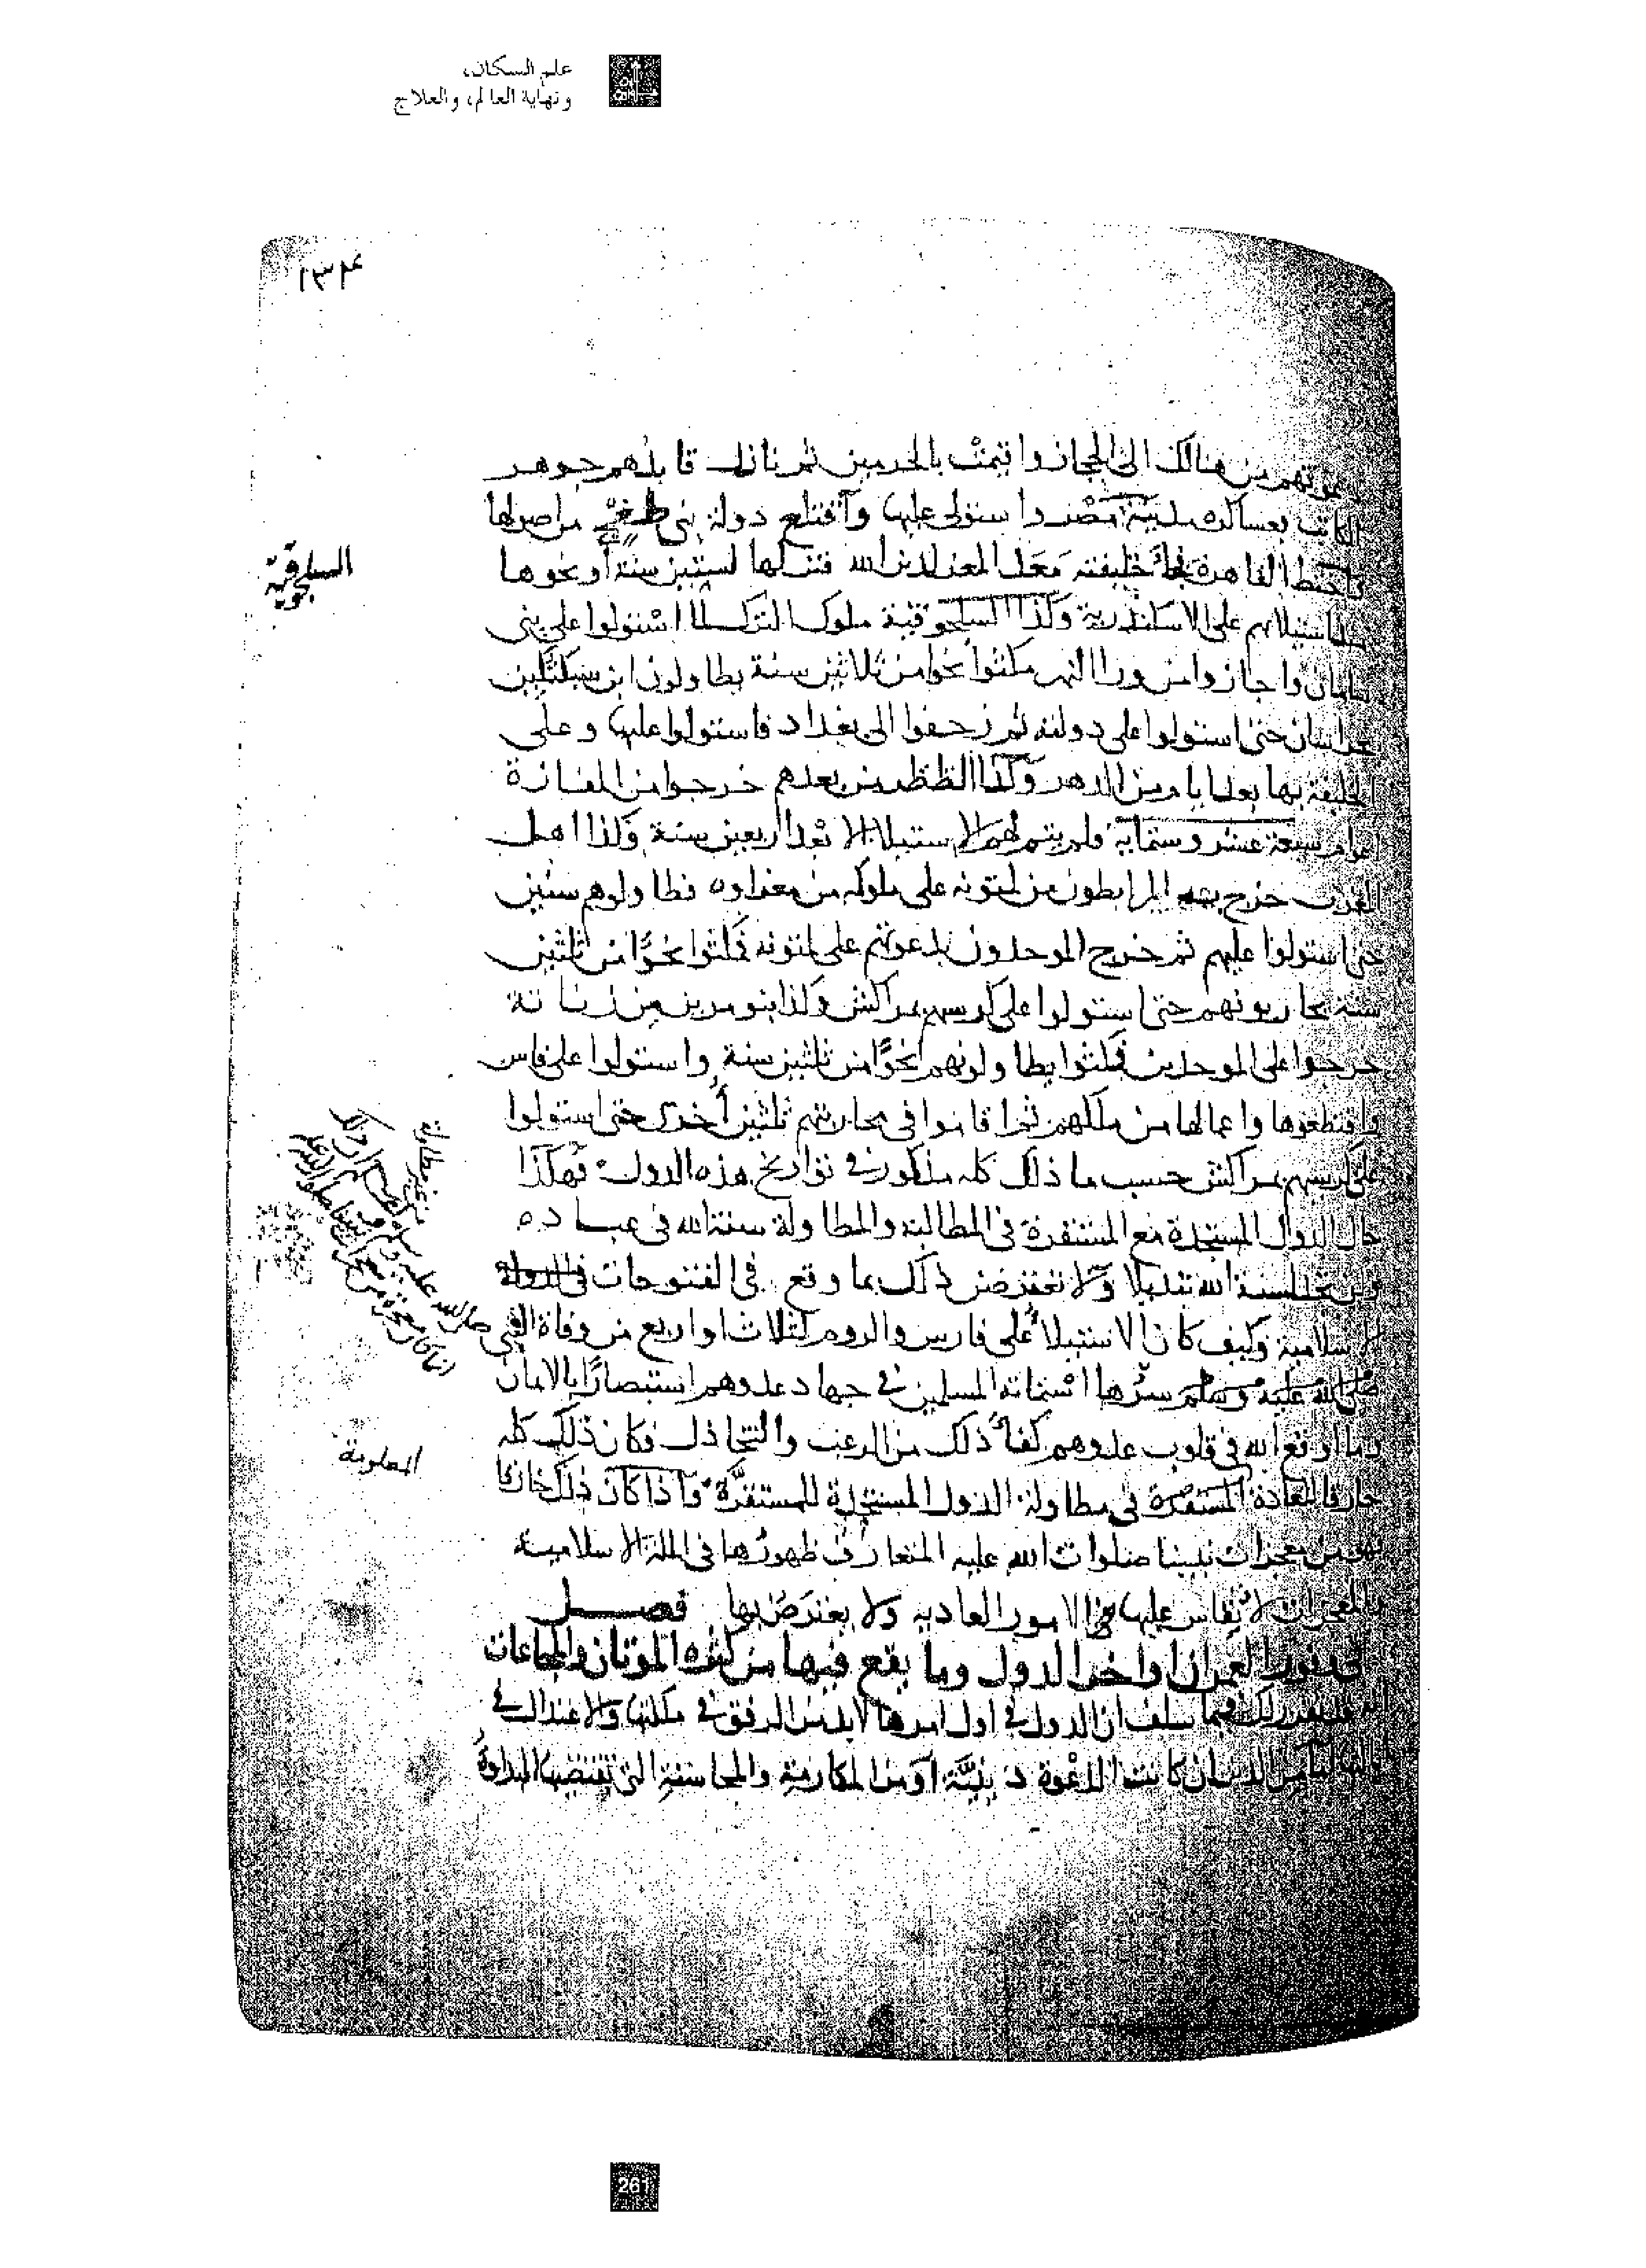 علم السكان،
ونهاية العالم، والعلاج
١٣٤
دعوتهم من هنالك الى الحجاز واقيمت بالحرمين ثم نازل قايدهم جوهر
الكاتب بعساكره مدينة مصر واستولى عليها واقتلع دولة بنى طغج من اصولها
واختط القاهرة فجاء خليفته معد المعز لدين الله فنزلها لستين سنة أو نحوها
استيلائهم على الاسكندرية وكذا السلجوقية ملوك الترك لما استولوا على بنى
سامان واجازوا من ورا النهر مكثوا نحوا من ثلاثين سنة يطاولون ابن سبكتكين
بخراسان حتى استولوا على دولته ثم زحفوا الى بغداد فاستولوا عليها وعلى
الخليفة بها بعد ايام من الدهر وكذا الططر من بعدهم خرجوا من المفازة
اعوام سبعة عشر وستماية فلم يتم لهم الاستيلا الا بعد اربعين سنة وكذا اهل
المغرب خرج به المرابطون من لمتونه على ملوكه من مغراوه فطاولوهم سنين
حتى استولوا عليهم ثم خرج الموحدون بدعوتهم على لمتونه فمكثوا نحوًا من ثلثين
سنة يحاربونهم حتى استولوا على كرسيهم بمراكش وكذا بنو مرين من زناتة
خرجوا على الموحدين فمكثوا يطاولونهم نحوًا من ثلثين سنة واستولوا على فاس
واقتطعوها واعمالها من ملكهم ثم اقاموا فى محاربتهم ثلثين أخرى حتى استولوا
على كرسيهم بمراكش حسب ما ذلك كله مذكور فى تواريخ هذه الدول فهكذا
حال الدول المستجدة مع المستقرة فى المطالبة والمطاولة سنة الله فى عباده
ولن تجد لسنة الله تبديلا ولا تعترض ذلك بما وقع فى الفتوحات
الاسلامية وكيف كان الاستيلاء على فارس والروم لثلاث او اربع من وفاة النبى
صلى الله عليه وسلم سرها استماتة المسلمين فى جهاد عدوهم استبصارًا بالايمان
وما اوقع الله فى قلوب عدوهم كفاء ذلك من الرعب والتخاذل فكان ذلك كله
خارقا للعادة المستقرة فى مطاولة الدول المستجدة للمستقرّة واذا كان ذلك خارقا
فهو من معجزات نبينا صلوات الله عليه المتعارف ظهورها فى الملة الاسلامية
والمعجزات لا يقاس عليها الامور العاديه ولا يعترض بها فصل
فى وفور العمران اواخر الدول وما يقع فيها من كثره الموتان والمجاعات
انه قد تقرر لك فيما سلف ان الدول فى اول امرها لا بد من الرفق فى ملكتها والاعتدال فى
ايالتها اما من الدين ان كانت الدعوة دينيّة او من المكارمة والمحاسنة التى تقتضيها البداوة
السلجوقية
المعلومة
261